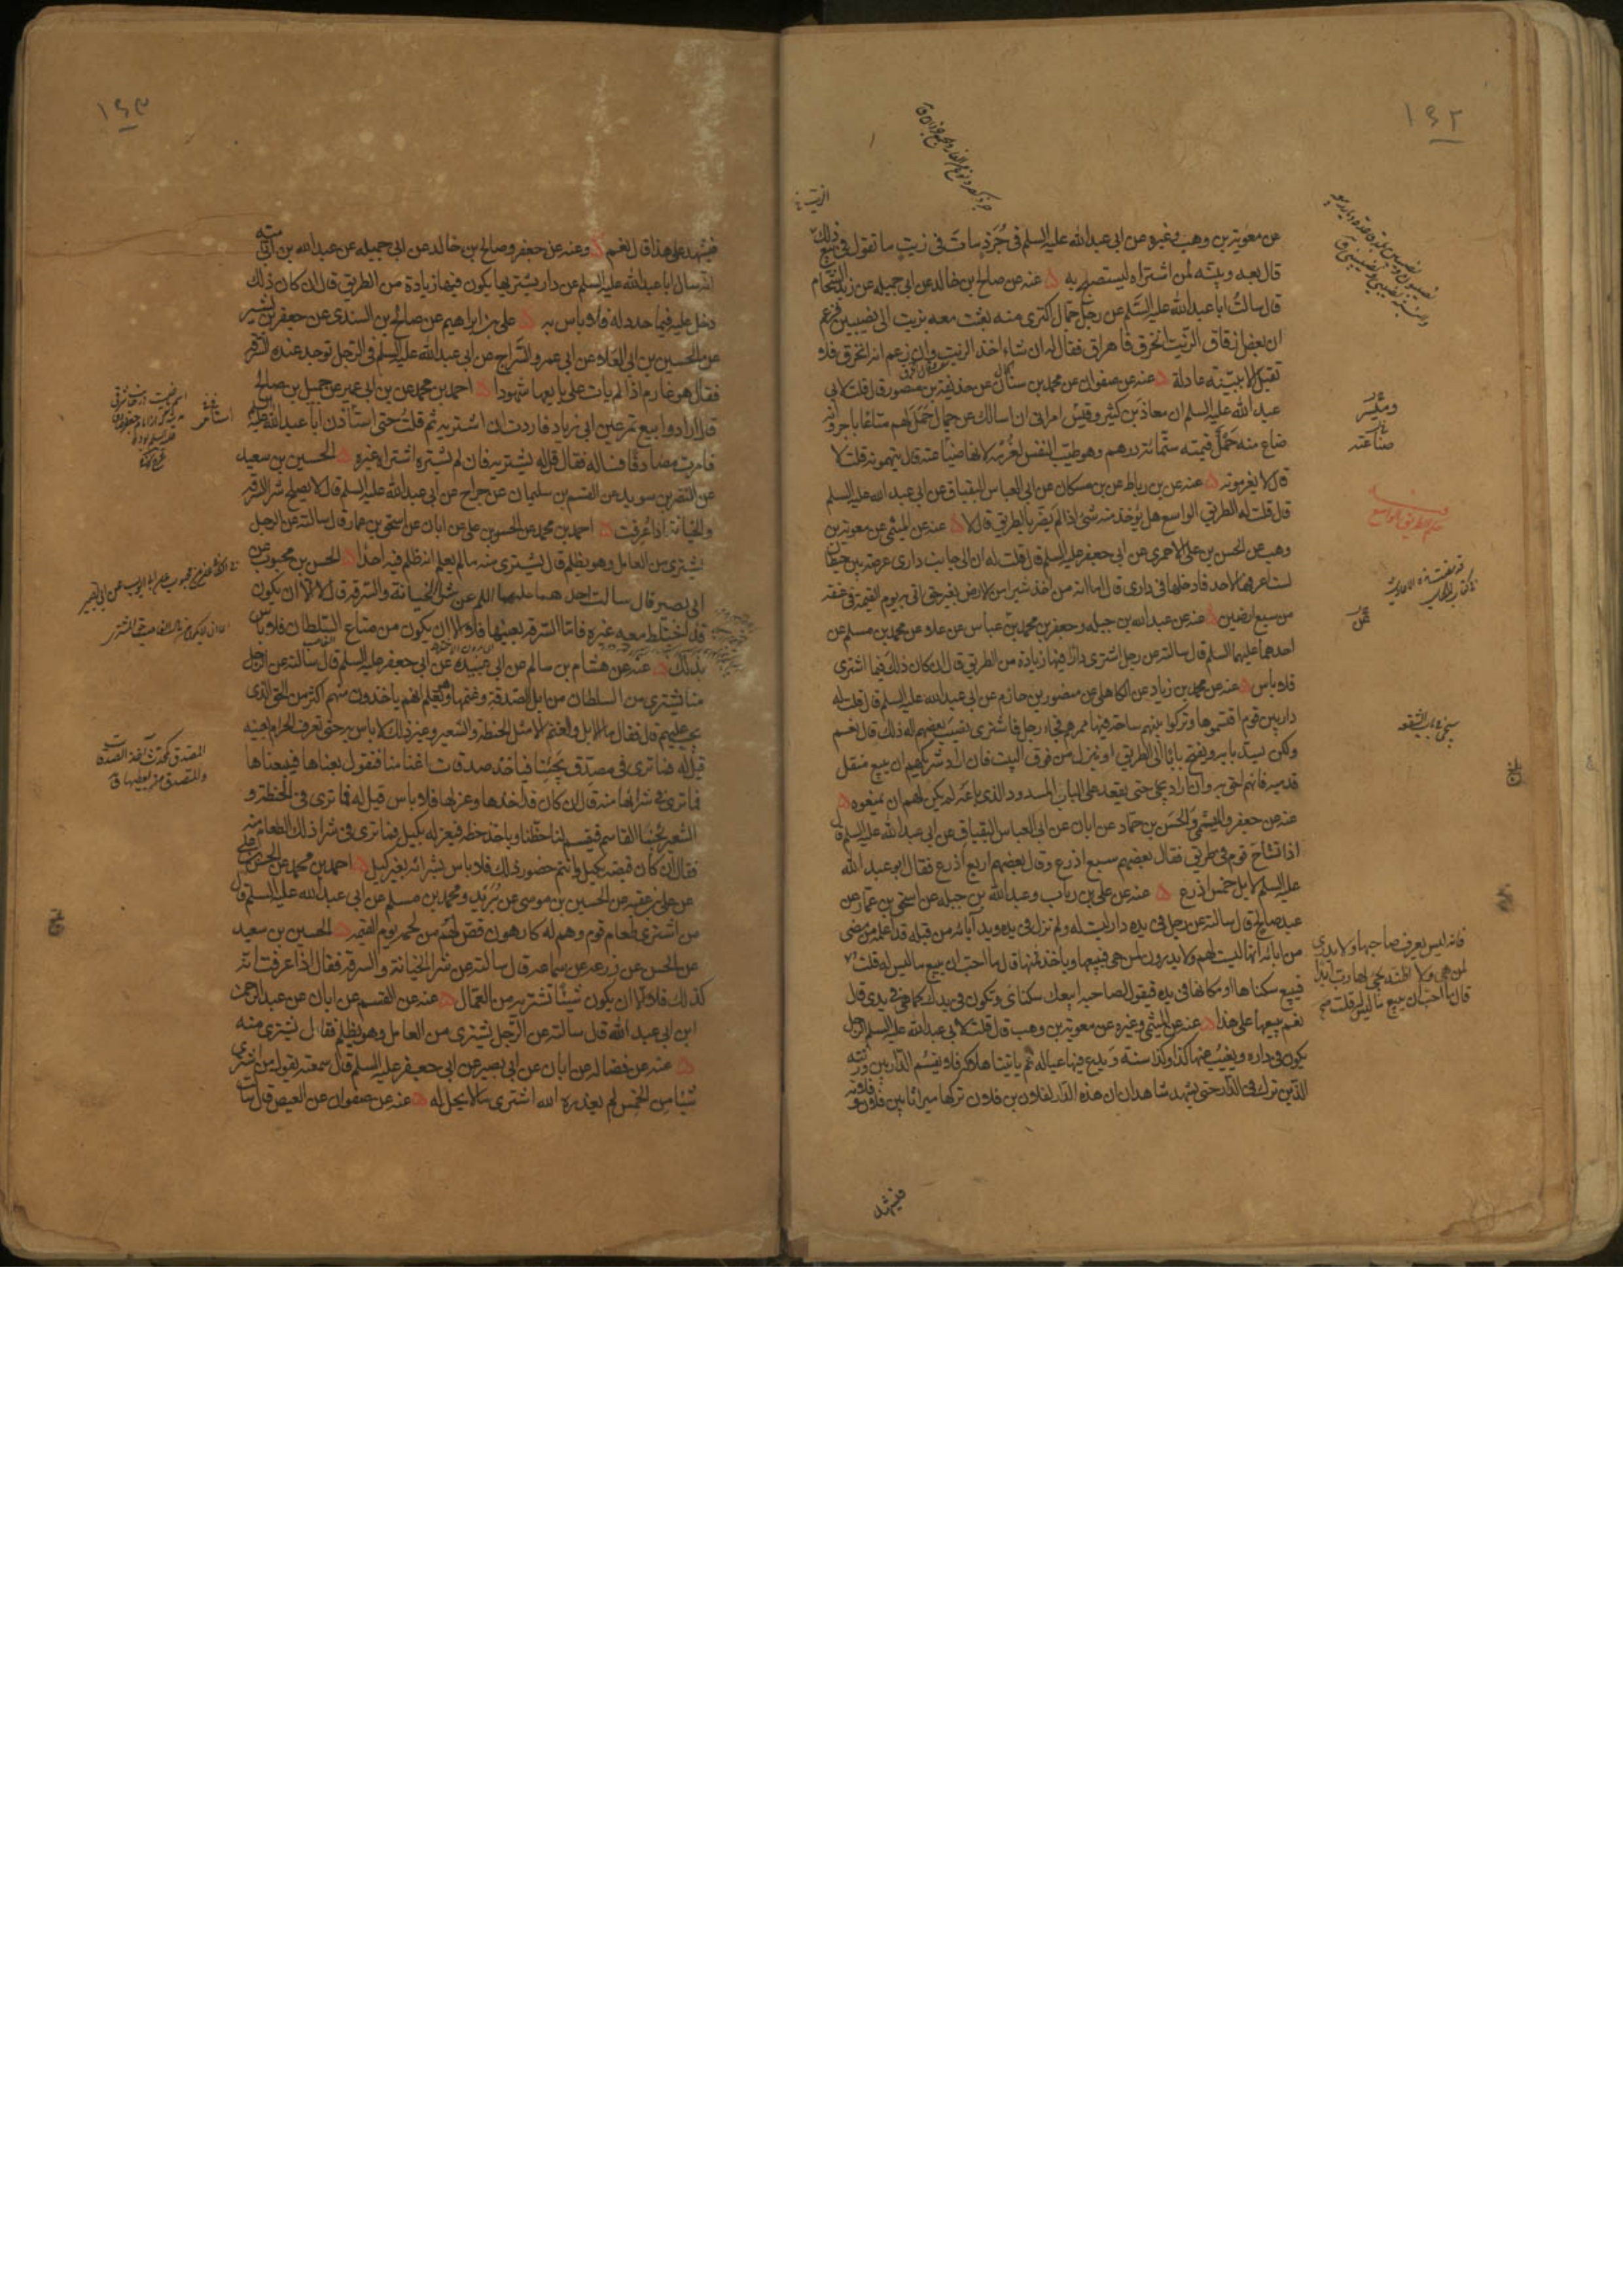 ١٦٢
عن معوية بن وهب وغيره عن ابى عبدالله عليه السلم فى جُرَذٍ مات فى زيتٍ ما تقول فى بيع ذلك
قال بعه وبيّنه لمن اشتراه ليستصبح به ه عنه عن صالح بن خالد عن ابى جميله عن زيد الشحام
قال سالت ابا عبدالله عليه السلم عن رجل جمّال اكترى منه بعث معه بزيت الى نصيبين فزعم
ان بعض زقاق الزيت انخرق فاهراق فقال له ان شاء اخذ الزيت وان زعم انه انخرق فلا
تقبل الا ببيّنه عادلة ه عنه عن صفوان عن محمد بن سنان عن حذيفة بن منصور قال قلت لابى
عبد الله عليه السلم ان معاذ بن كثير وقيس امرانى ان اسالك عن جمال حمل لهم متاعا باجر وانه
ضاع منه حَمْلٌ قيمته ستّمائة درهم وهو طيّب النفس لغرمه لانها ضيا عته قال يتهمونه قلت لا
قال لا يغرمونه ه عنه عن بن رباط عن بن مسكان عن ابى العباس البقباق عن ابى عبد الله عليه السلم
قال قلت له الطريق الواسع هل يوخذ منه شئ اذا لم يضر بالطريق قال لا ه عنه عن الميثمى عن معوية بن
وهب عن الحسن بن على الاحمرى عن ابى جعفر عليه السلم قال قلت له ان الى جانب دارى عرصة بين حيطان
لست اعرفها لاحد فادخلها فى دارى قال اما انه من اخذ شبرا من الارض بغير حق اتى به يوم القيمة فى عنقه
من سبع ارضين ه عنه عن عبدالله بن جبله وجعفر بن محمد بن عباس عن علا عن محمد بن مسلم عن
احدهما عليهما السلم قال سالته عن رجل اشترى دارا فيها زيادة من الطريق قال ان كان ذلك فيما اشترى
فلا باس ه عنه عن محمد بن زياد عن الكاهلى عن منصور بن حازم عن ابى عبدالله عليه السلم قال قلت له
دار بين قوم اقتسموها وتركوا بينهم ساحة فيها ممرهم فجاء رجل فاشترى نصيب بعضهم اله ذلك قال نعم
ولكن يسد بابه ويفتح بابا الى الطريق او ينزل من فوق البيت فان اراد شريكهم ان يبيع منقل
قدميه فانهم احق به وان اراد يجئ حتى يقعد على الباب المسدود الذى باعه لم يكن لهم ان يمنعوه ه
عنه عن جعفر والميثمى والحسن بن حماد عن ابان عن ابى العباس البقباق عن ابى عبدالله عليه السلم قال
اذا تشاح قوم فى طريق فقال بعضهم سبع اذرع وقال بعضهم اربع اذرع فقال ابو عبدالله
عليه السلم لا بل خمس اذرع ه عنه عن على بن رباب وعبدالله بن جبله عن اسحق بن عمار عن
عبد صالح قال سالته عن رجل فى يده دار ليست له ولم تزل فى يده ويد آبائه من قبله قد اعلمه من مضى
من ابائه انها ليست لهم ولا يدرون لمن هى فيبيعها وياخذ ثمنها قال ما احب ان يبيع ما ليس له قلت
فيبيع سكناها او مكانها فى يده فيقول لصاحبه ابيعك سكناى وتكون فى يدك كما هى فى يدى قال
نعم يبيعها على هذا ه عنه عن الميثمى وغيره عن معوية بن وهب قال قلت لابى عبدالله عليه السلم الرجل
يكون فى داره ويغيب عنها كذا وكذا سنة ويدع فيها عياله ثم ياتينا هلاكه فلا يقسم الدار بين ورثته
الذين ترك فى الدار حتى يشهد شاهدان ان هذه الدار لفلان بن فلان تركها ميراثا بين فلان وفلان
فيشهد
وميّسر
صناعته
حكم الطريق الواسع
سيجئ فى باب الشفعه
فانه ليس يعرف صاحبها ولا يدرى
لمن هى ولا اظنه يجئ لها رب ابدا
قال ما احب ان يبيع ما ليس له قلت
١٦٣
فيشهد على هذا قال نعم ه وعنه عن جعفر وصالح بن خالد عن ابى جميله عن عبدالله بن ابى اميّه
انه سال ابا عبدالله عليه السلم عن دار يشتريها يكون فيها زيادة من الطريق قال ان كان ذلك
دخل عليه فيما حدد له فلا باس به ه على بن ابراهيم عن صالح بن السندى عن جعفر بن بشير
عن الحسين بن ابى العلاء عن ابى عمرو السّراج عن ابى عبدالله عليه السلم فى الرجل توجد عنده السرقه
فقال هو غارم اذا لم يات على بايعها شهودا ه احمد بن محمد عن بن ابى عمير عن جميل بن صالح
قال ارادوا بيع تمر عين ابى زياد فاردت ان اشتريه ثم قلت حتى استأذن ابا عبدالله عليه السلم
فامرت مصادقا فساله فقال قل له يشتريه فان لم يشتره اشتراه غيره ه الحسين بن سعيد
عن النضر بن سويد عن القسم بن سليمان عن جراح عن ابى عبدالله عليه السلم قال لا يصلح شرا السرقه
والخيانة اذا عُرفت ه احمد بن محمد عن الحسن بن على عن ابان عن اسحق بن عمار قال سالته عن الرجل
يشترى من العامل وهو يظلم قال يشترى منه ما لم يعلم انه ظلم فيه احدا ه الحسن بن محبوب عن
ابى بصير قال سالت احدهما عليهما السلم عن شرا الخيانة والسرقة قال لا الا ان يكون
قد اختلط معه غيره فاما السرقه بعينها فلا الا ان يكون من متاع السلطان فلا باس
بذلك ه عنه عن هشام بن سالم عن ابى عبيدة عن ابى جعفر عليه السلم قال سالته عن الرجل
منا يشترى من السلطان من ابل الصدقة وغنمها وهو يعلم انهم ياخذون منهم اكثر من الحق الذى
يجب عليهم قال فقال ما الابل والغنم الا مثل الحنطة والشعير وغير ذلك لا باس به حتى تعرف الحرام بعينه
قيل له فما ترى فى مصدّق يجيئنا فياخذ صدقات اغنامنا فنقول بعناها فيبيعناها
فما ترى فى شرائها منه قال ان كان قد اخذها وعزلها فلا باس قيل له فما ترى فى الحنطة و
الشعير يجئنا القاسم فيقسم لنا حظّنا وياخذ حظه فيعزله بكيل فما ترى فى شرا ذلك الطعام منه
فقال ان كان قبضه بكيل وانتم حضور ذلك فلا باس بشرائه بغير كيل ه احمد بن محمد عن الحسن بن على
عن على بن عقبه عن الحسين بن موسى عن بُرَيْدٍ ومحمد بن مسلم عن ابى عبدالله عليه السلم قال
من اشترى طعام قوم وهم له كارهون قص لهم من لحمه يوم القيمه ه الحسين بن سعيد
عن الحسن عن زرعه عن سماعه قال سالته عن شرا الخيانة والسرقه فقال اذا عرفت انه
كذلك فلا الا ان يكون شيئا تشتريه من العمال ه عنه عن القسم عن ابان عن عبدالرحمن
ابن ابى عبد الله قال سالته عن الرجل يشترى من العامل وهو يظلم فقال يشترى منه
ه عنه عن فضاله عن ابان عن ابى بصير عن ابى جعفر عليه السلم قال سمعته يقول من اشترى
شيئا من الخمس لم يعذره الله اشترى ما لا يحل له ه عنه عن صفوان عن العيص قال سالت
استامر
المصدق كمحدث آخذ الصدقات
والمتصدق من يعطيها ق